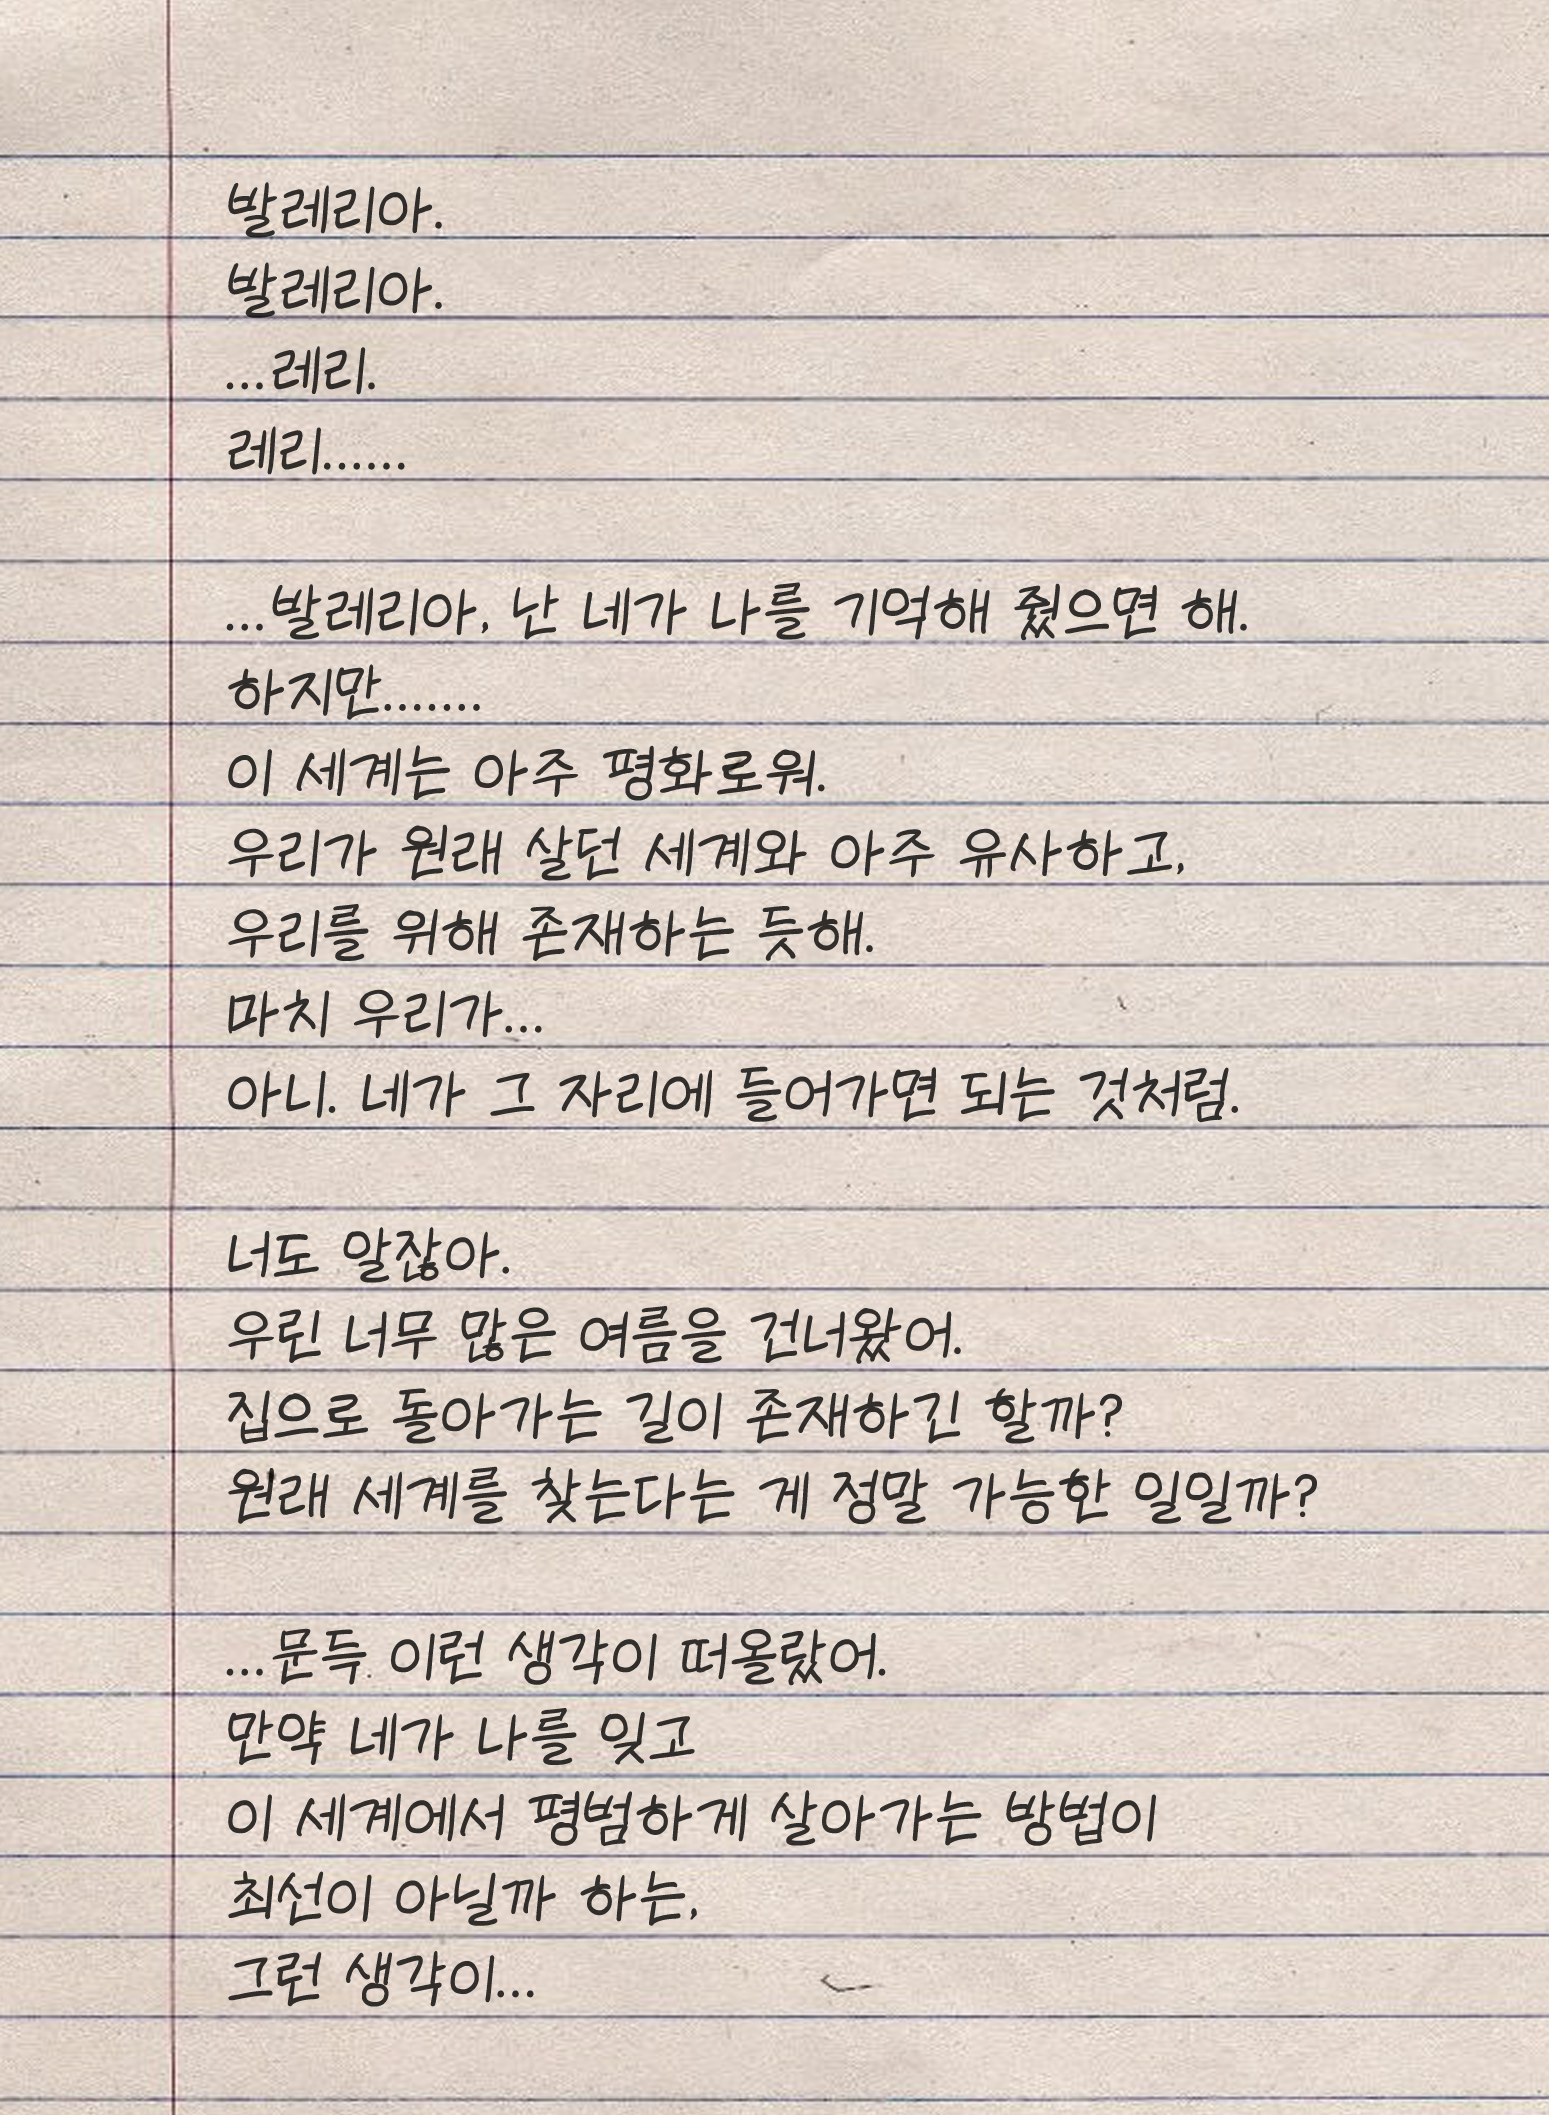 발레리아.
발레리아.
...레리.
레리......
...발레리아, 난 네가 나를 기억해 줬으면 해.
하지만.......
이 세계는 아주 평화로워.
우리가 원래 살던 세계와 아주 유사하고,
우리를 위해 존재하는 듯해.
마치 우리가...
아니. 네가 그 자리에 들어가면 되는 것처럼.
너도 알잖아.
우린 너무 많은 여름을 건너왔어.
집으로 돌아가는 길이 존재하긴 할까?
원래 세계를 찾는다는 게 정말 가능한 일일까?
...문득 이런 생각이 떠올랐어.
만약 네가 나를 잊고
이 세계에서 평범하게 살아가는 방법이
최선이 아닐까 하는,
그런 생각이...